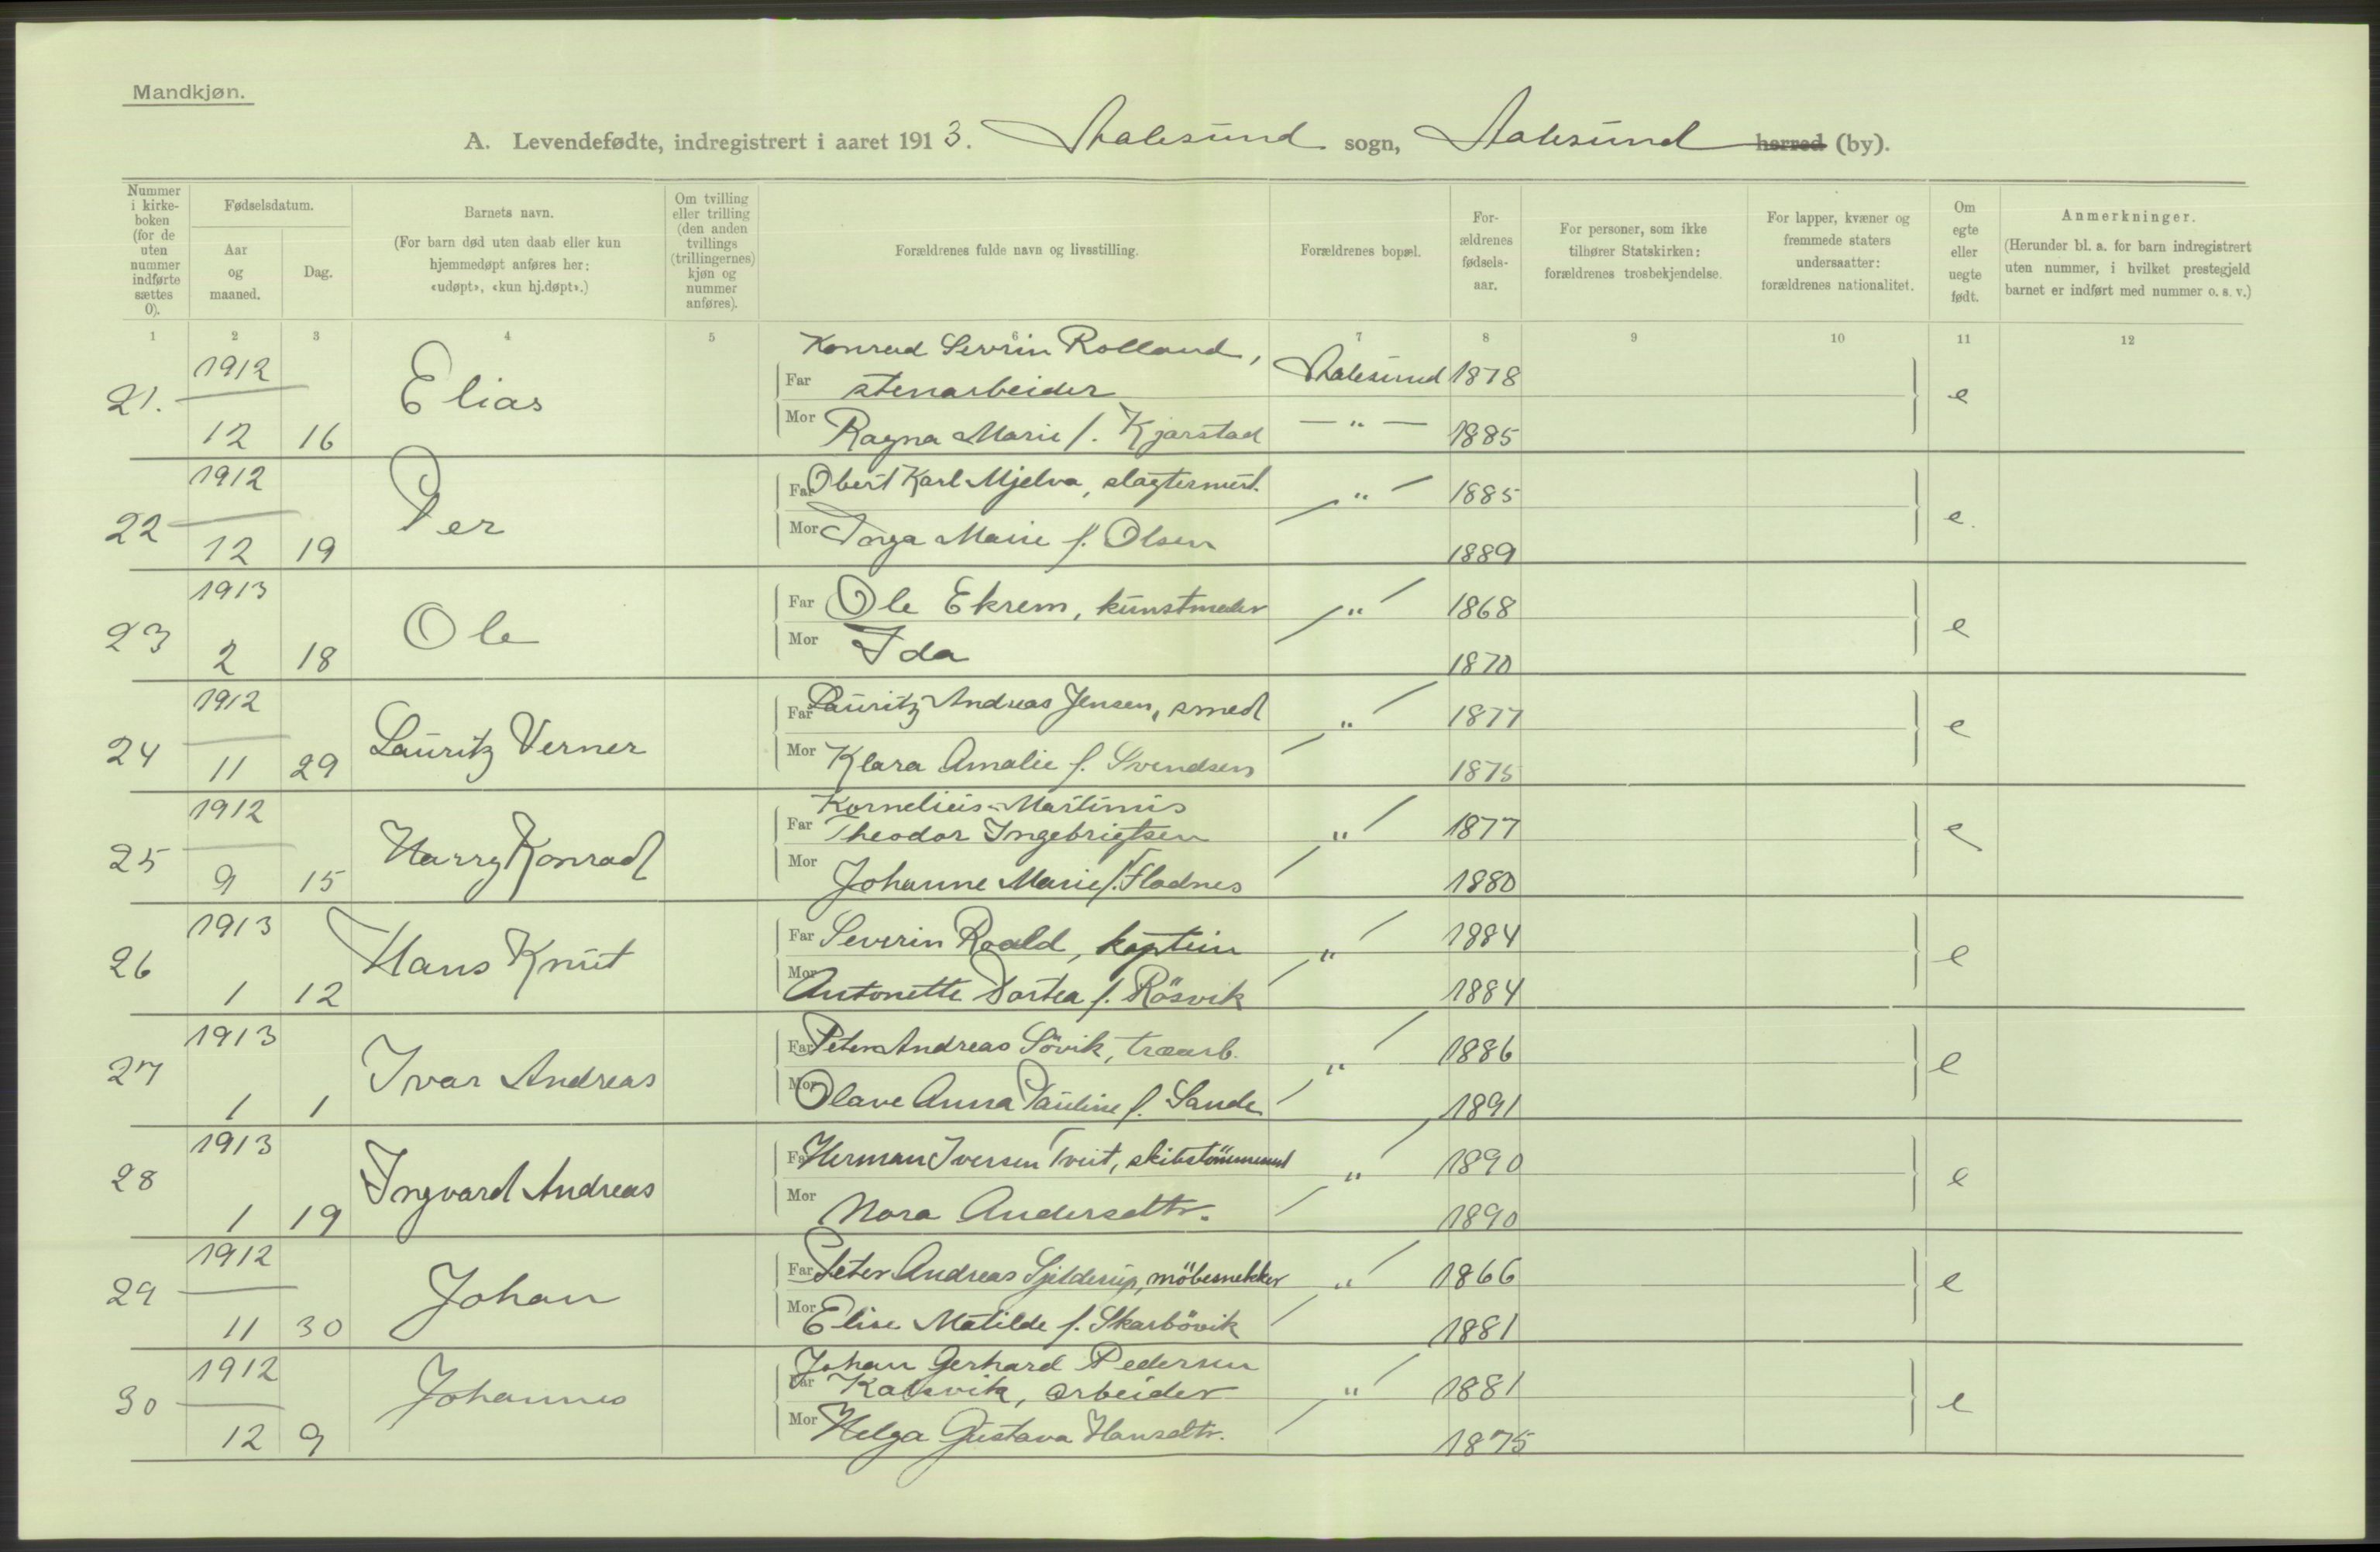 Mandkjøn.
A. Levendefødte, indregistrert i aaret 1913. Aalesund sogn, Aalesund herred (by).
Nummer i kirke-boken (for de uten nummer indførte sættes 0).
Fødselsdatum.
Aar og maaned.
Dag.
Barnets navn.
(For barn død uten daab eller kun hjemmedøpt anføres her: «udøpt», «kun hj.døpt».)
Om tvilling eller trilling (den anden tvillings (trillingernes) kjøn og nummer anføres).
Forældrenes fulde navn og livsstilling.
Forældrenes bopæl.
For-ældrenes fødsels-aar.
For personer, som ikke tilhører Statskirken: forældrenes trosbekjendelse.
For lapper, kvæner og fremmede staters undersaatter: forældrenes nationalitet.
Om egte eller uegte født.
Anmerkninger.
(Herunder bl. a. for barn indregistrert uten nummer, i hvilket prestegjeld barnet er indført med nummer o. s. v.)
1 2 3 4 5 6 7 8 9 10 11 12
21. 1912 12 16 Elias
Konrad Severin Rolland,
Far stenarbeider Aalesund 1878 e
Mor Ragna Marie f. Kjarstad — " — 1885
22 1912 12 19 Per
Far Obert Karl Mjelva, slagtermest. — " — 1885 e.
Mor Inga Marie f. Olsen 1889
23 1913 2 18 Ole
Far Ole Ekrem, kunstmaler — " — 1868 e
Mor Ida 1870
24 1912 11 29 Lauritz Verner
Far Lauritz Andreas Jensen, smed — " — 1877 e
Mor Klara Amalie f. Svendsen 1875
25 1912 9 15 Harry Konrad
Kornelius Martinus
Far Theodor Ingebrigtsen — " — 1877 e
Mor Johanne Marie f. Fladnes 1880
26 1913 1 12 Hans Knut
Far Severin Roald, kaptein — " — 1884 e
Mor Antonette Dortea f. Rösvik 1884
27 1913 1 1 Ivar Andreas
Far Peter Andreas Sövik, træarb. — " — 1886 e
Mor Olave Anna Pauline f. Sande 1891
28 1913 1 19 Ingvard Andreas
Far Herman Iversen Tveit, — " — 1890 e
Mor Nora Andersdtr. 1890
29 1912 11 30 Johan
Far Peter Andreas Gjelderup, möbesnekker — " — 1866 e
Mor Elise Matilde f. Skarbövik 1881
30 1912 12 9 Johannes
Johan Gerhard Pedersen
Far Kalsvik, arbeider — " — 1881 e
Mor Helga Gustava Hansdtr. 1875